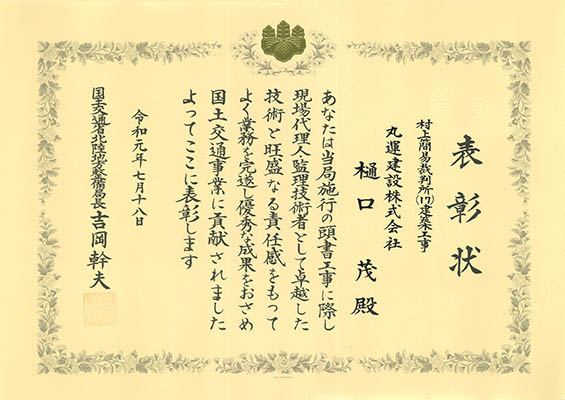 表彰状
村上簡易裁判所(17)建築工事
丸運建設株式会社
樋口茂殿
あなたは当局施行の頭書工事に際し
現場代理人監理技術者として卓越した
技術と旺盛なる責任感をもって
よく業務を完遂し優秀な成果をおさめ
国土交通事業に貢献されました
よってここに表彰します
令和元年七月十八日
国土交通省北陸地方整備局長 吉岡幹夫